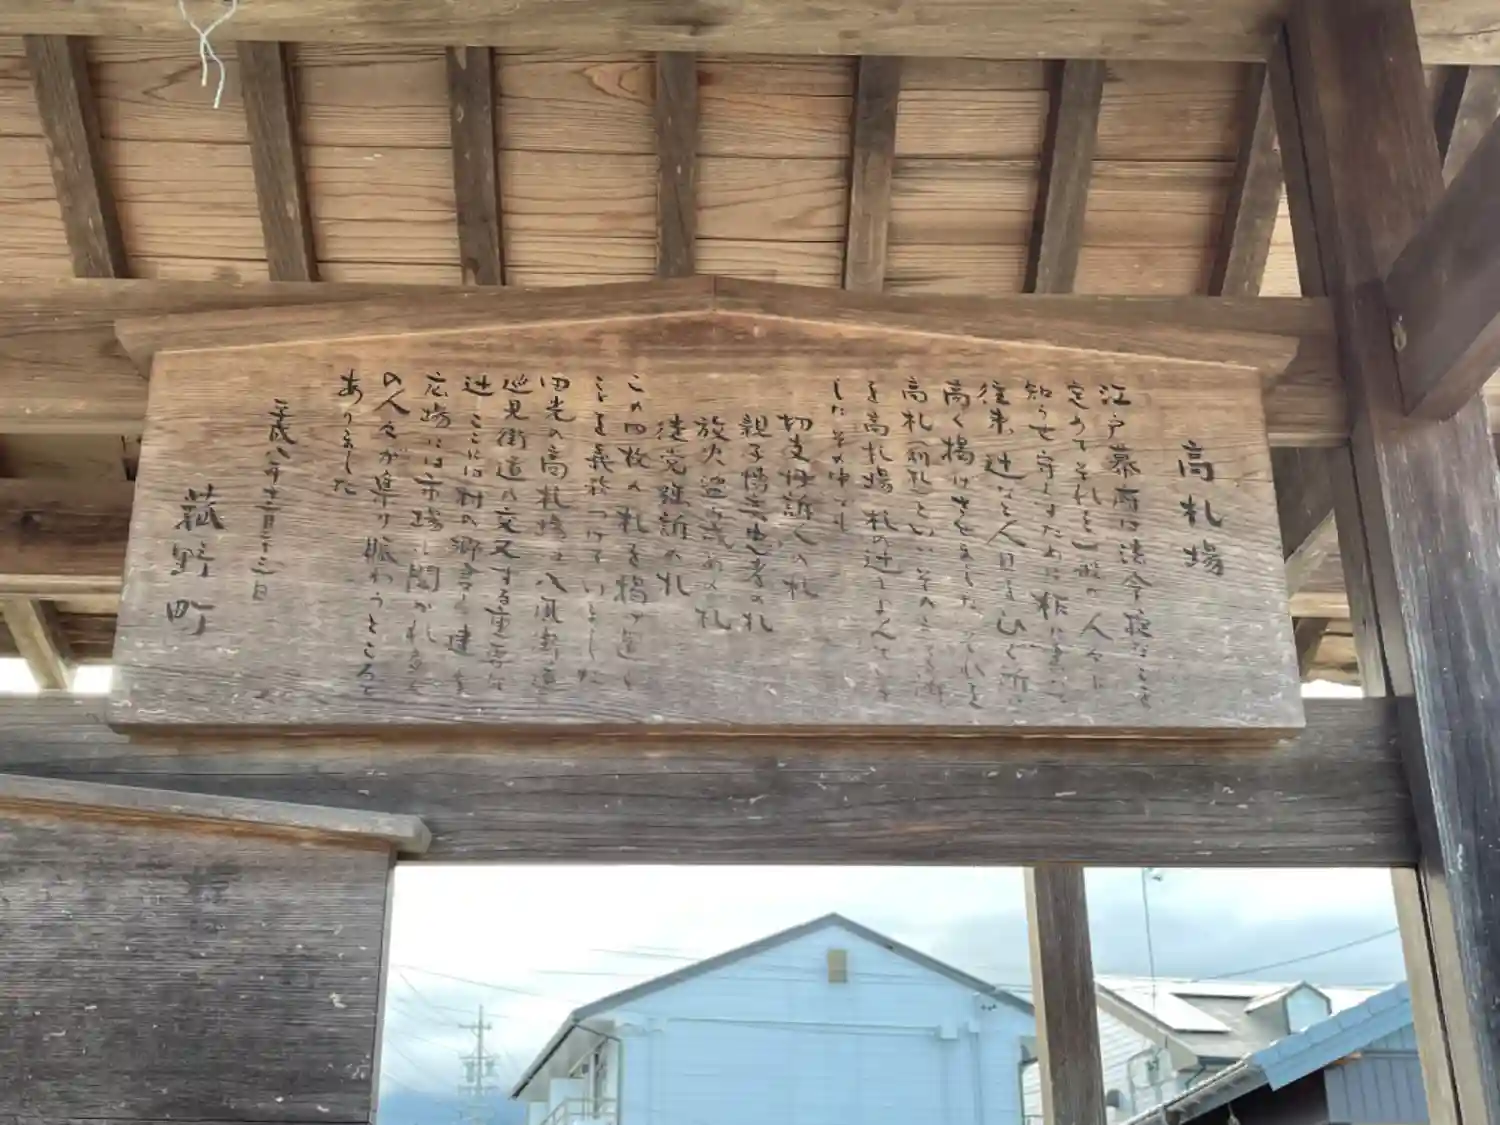 高札場
江戸幕府は法令、掟などを
定めてそれを一般の人々に
知らせ守らすために板に書いて
往来、辻など人目をひく所に
高く揚げさせました。これを
高札(制札)といいその立てる所
を高札場、札の辻とよんでいま
した。その中でも
切支丹訴人の札
親子忠孝の札
放火盗
徒党強訴の札
この四枚の札を掲げ
ことを義務づけていました
田光の高札場は八風街道
巡見街道の交叉する重要な
辻、ここには村の郷倉も建ち
広場には市場も開かれ多く
の人々が集り賑わうところで
ありました
平成八年十二月二十三日
菰野町